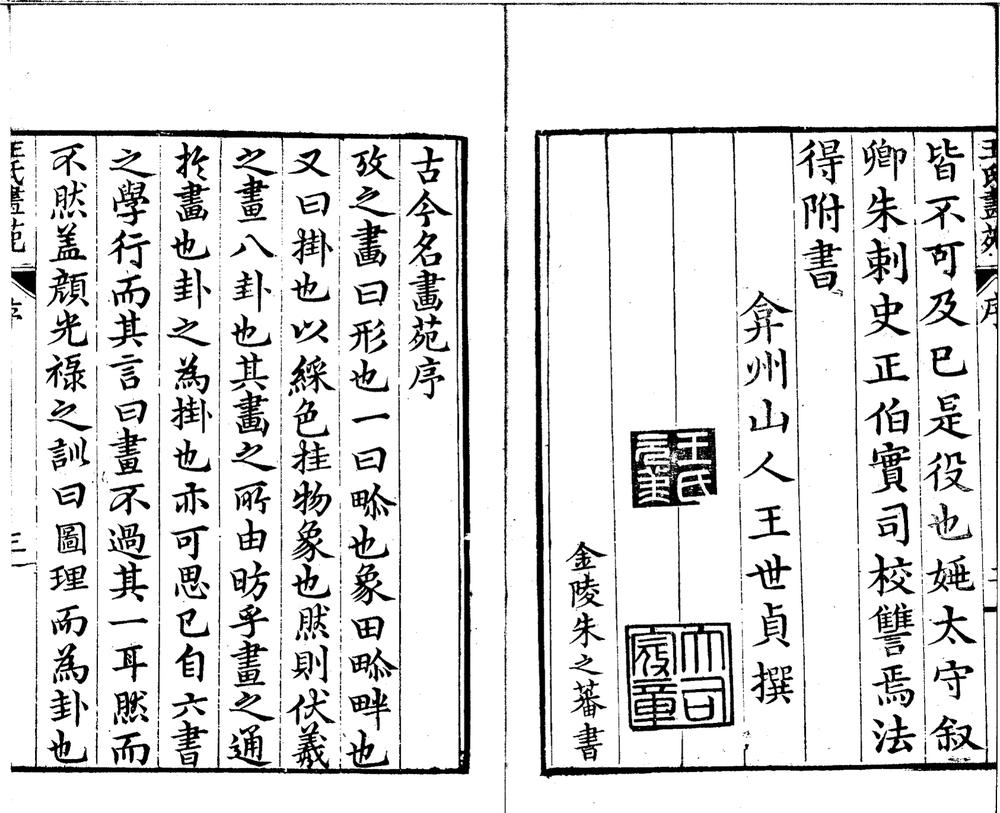 王氏畫苑 序 二
皆不可及已是役也太守叙
卿朱刺史正伯實司校讐焉法
得附書
弇州山人王世貞撰
王氏元美
大司寇章
金陵朱之蕃書
古今名畫苑序
攷之畫曰形也一曰畛也象田畛畔也
又曰掛也以綵色挂物象也然則伏羲
之畫八卦也其畫之所由昉乎畫之通
扵畫也卦之為掛也亦可思已自六書
之學行而其言曰畫不過其一耳然而
不然盖顔光祿之訓曰圖理而為卦也
王氏畫苑 序 三